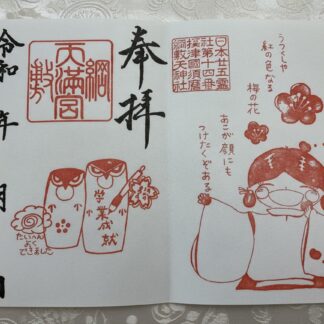 奉拝
綱敷
天満宮
令和 年 月 日
学業成就
たいへん
よく
できました
日本廿五霊
社第十四番
摂津國須磨
綱敷天神社
うつくしや
紅の色なる
梅の花
あこが顔にも
つけたくぞある